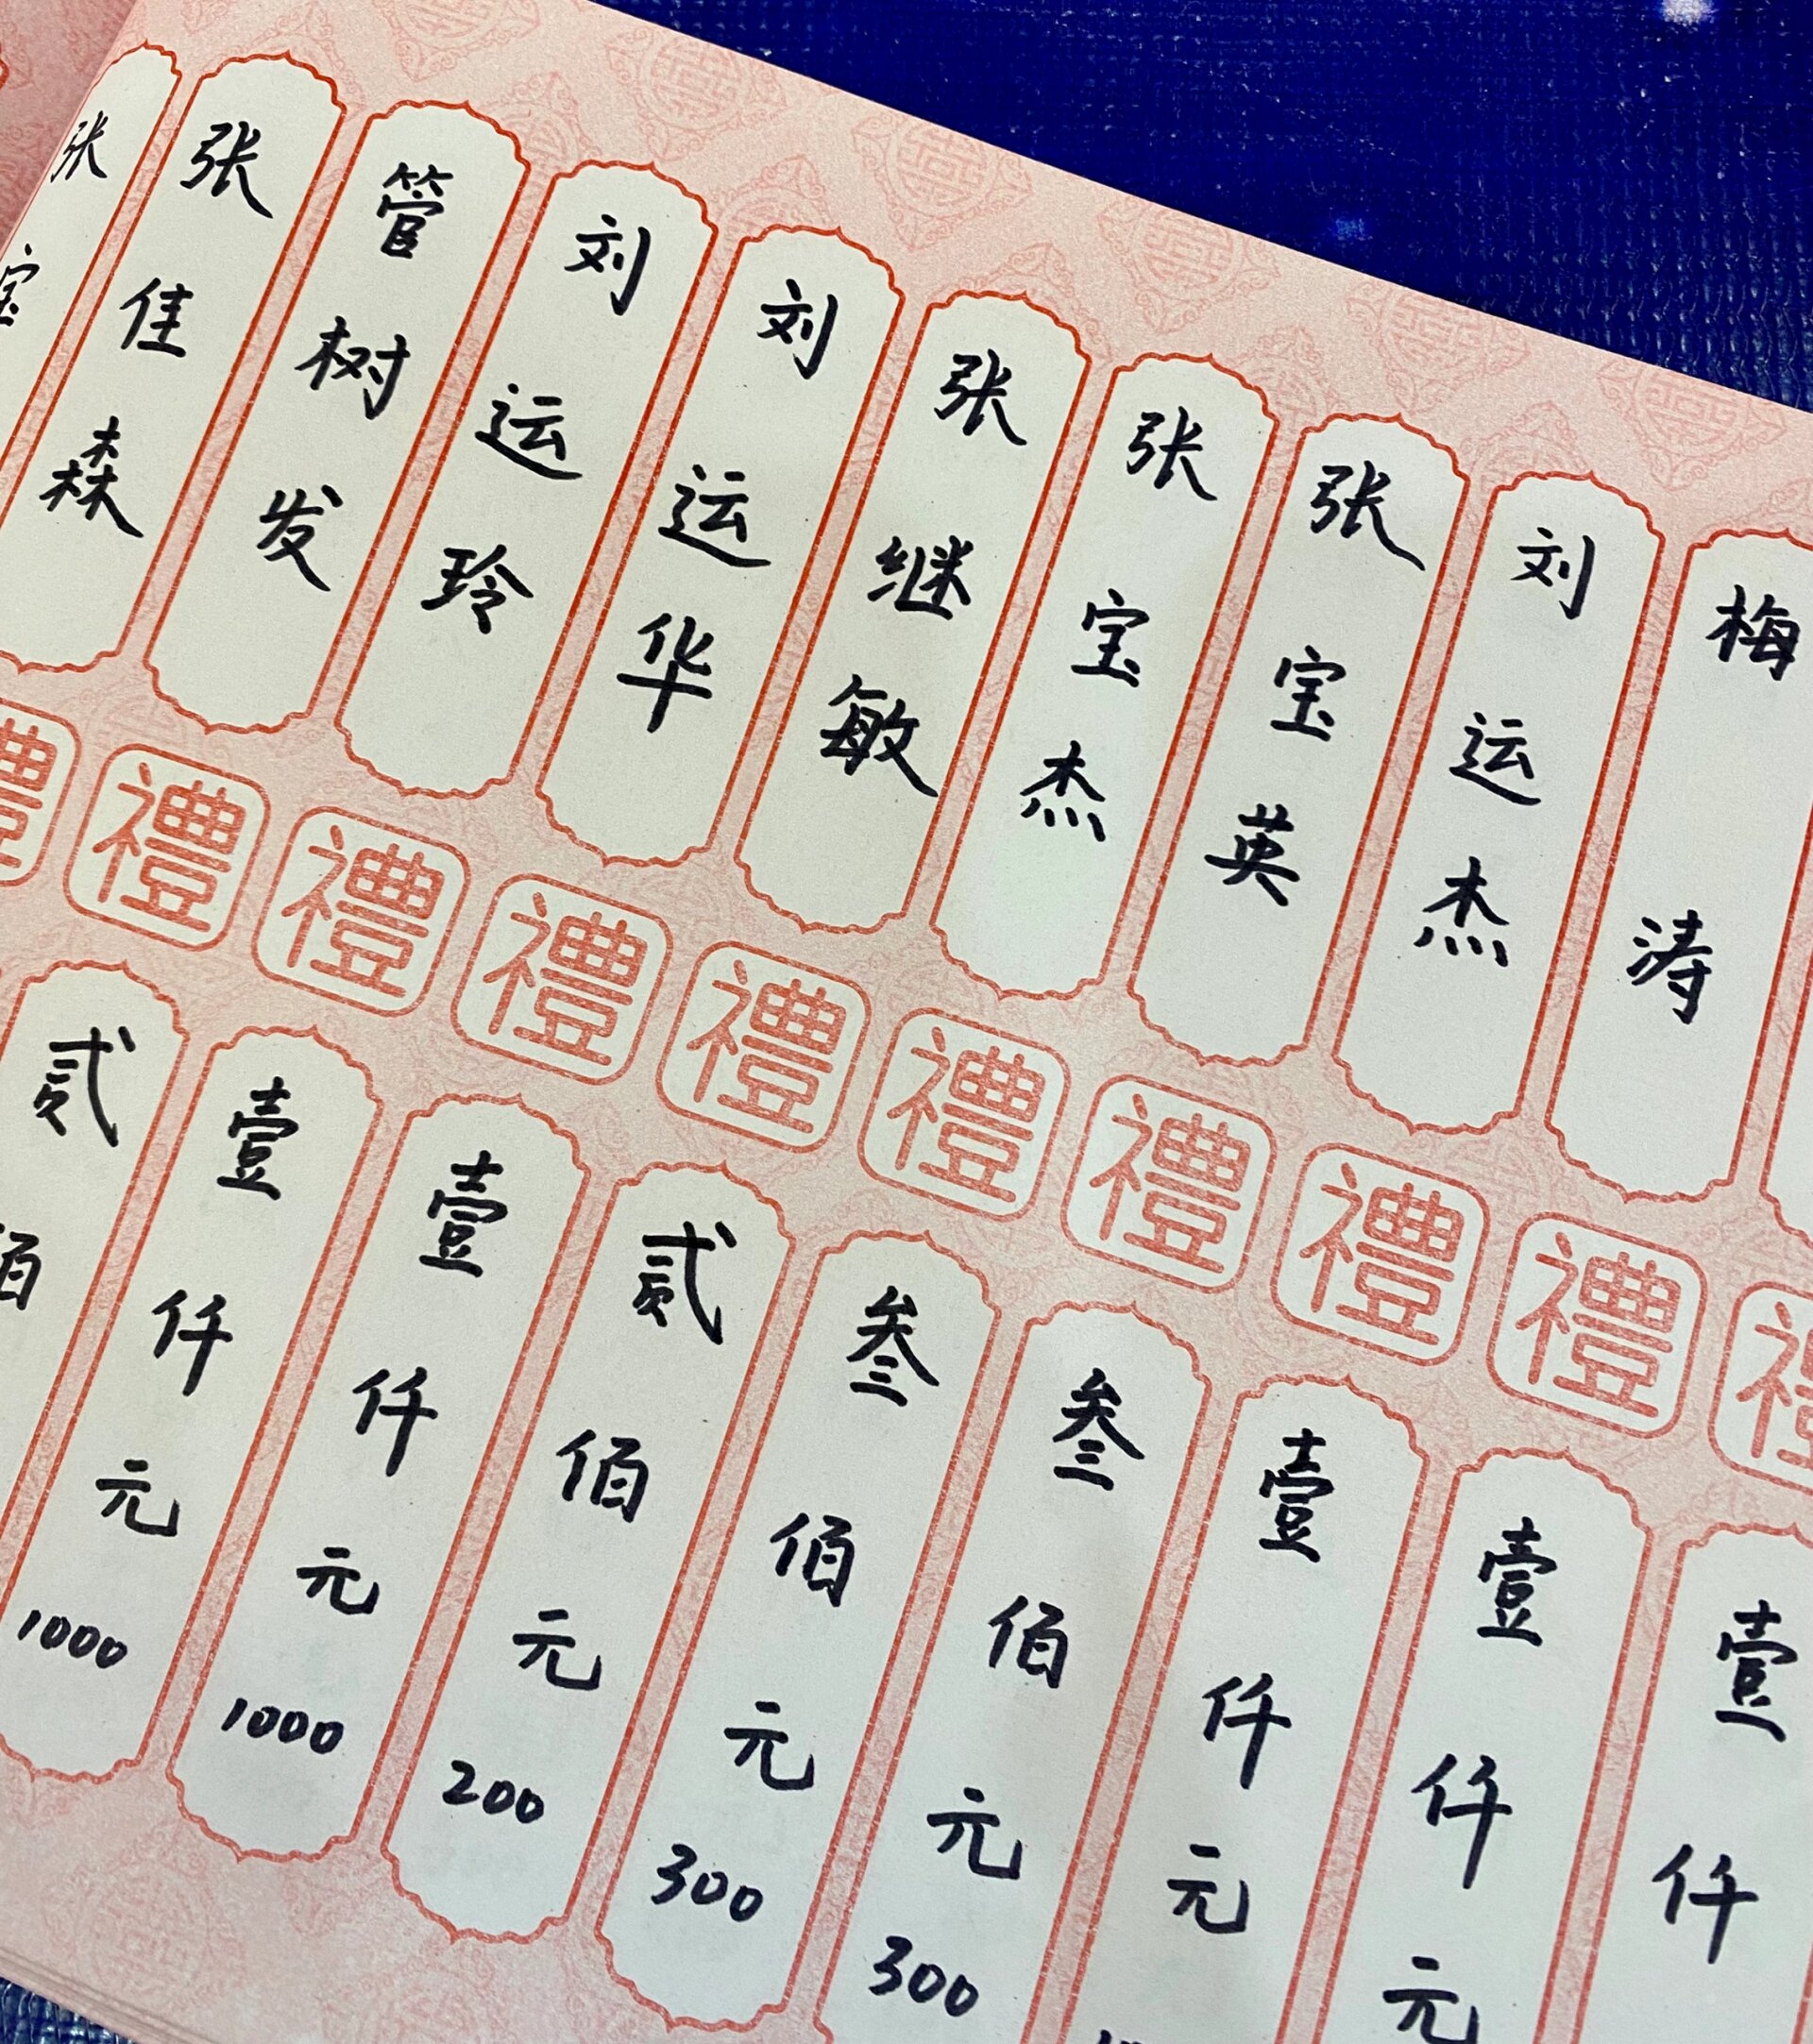 梅涛
刘运杰
张宝英
张宝杰
张继敏
刘运华
刘运玲
管树发
张佳森
张宝
禮
禮
禮
禮
禮
禮
禮
禮
禮
禮
壹仟
壹仟元
壹仟元
叁佰元
300
叁佰元
300
贰佰元
200
壹仟元
1000
壹仟元
1000
贰佰